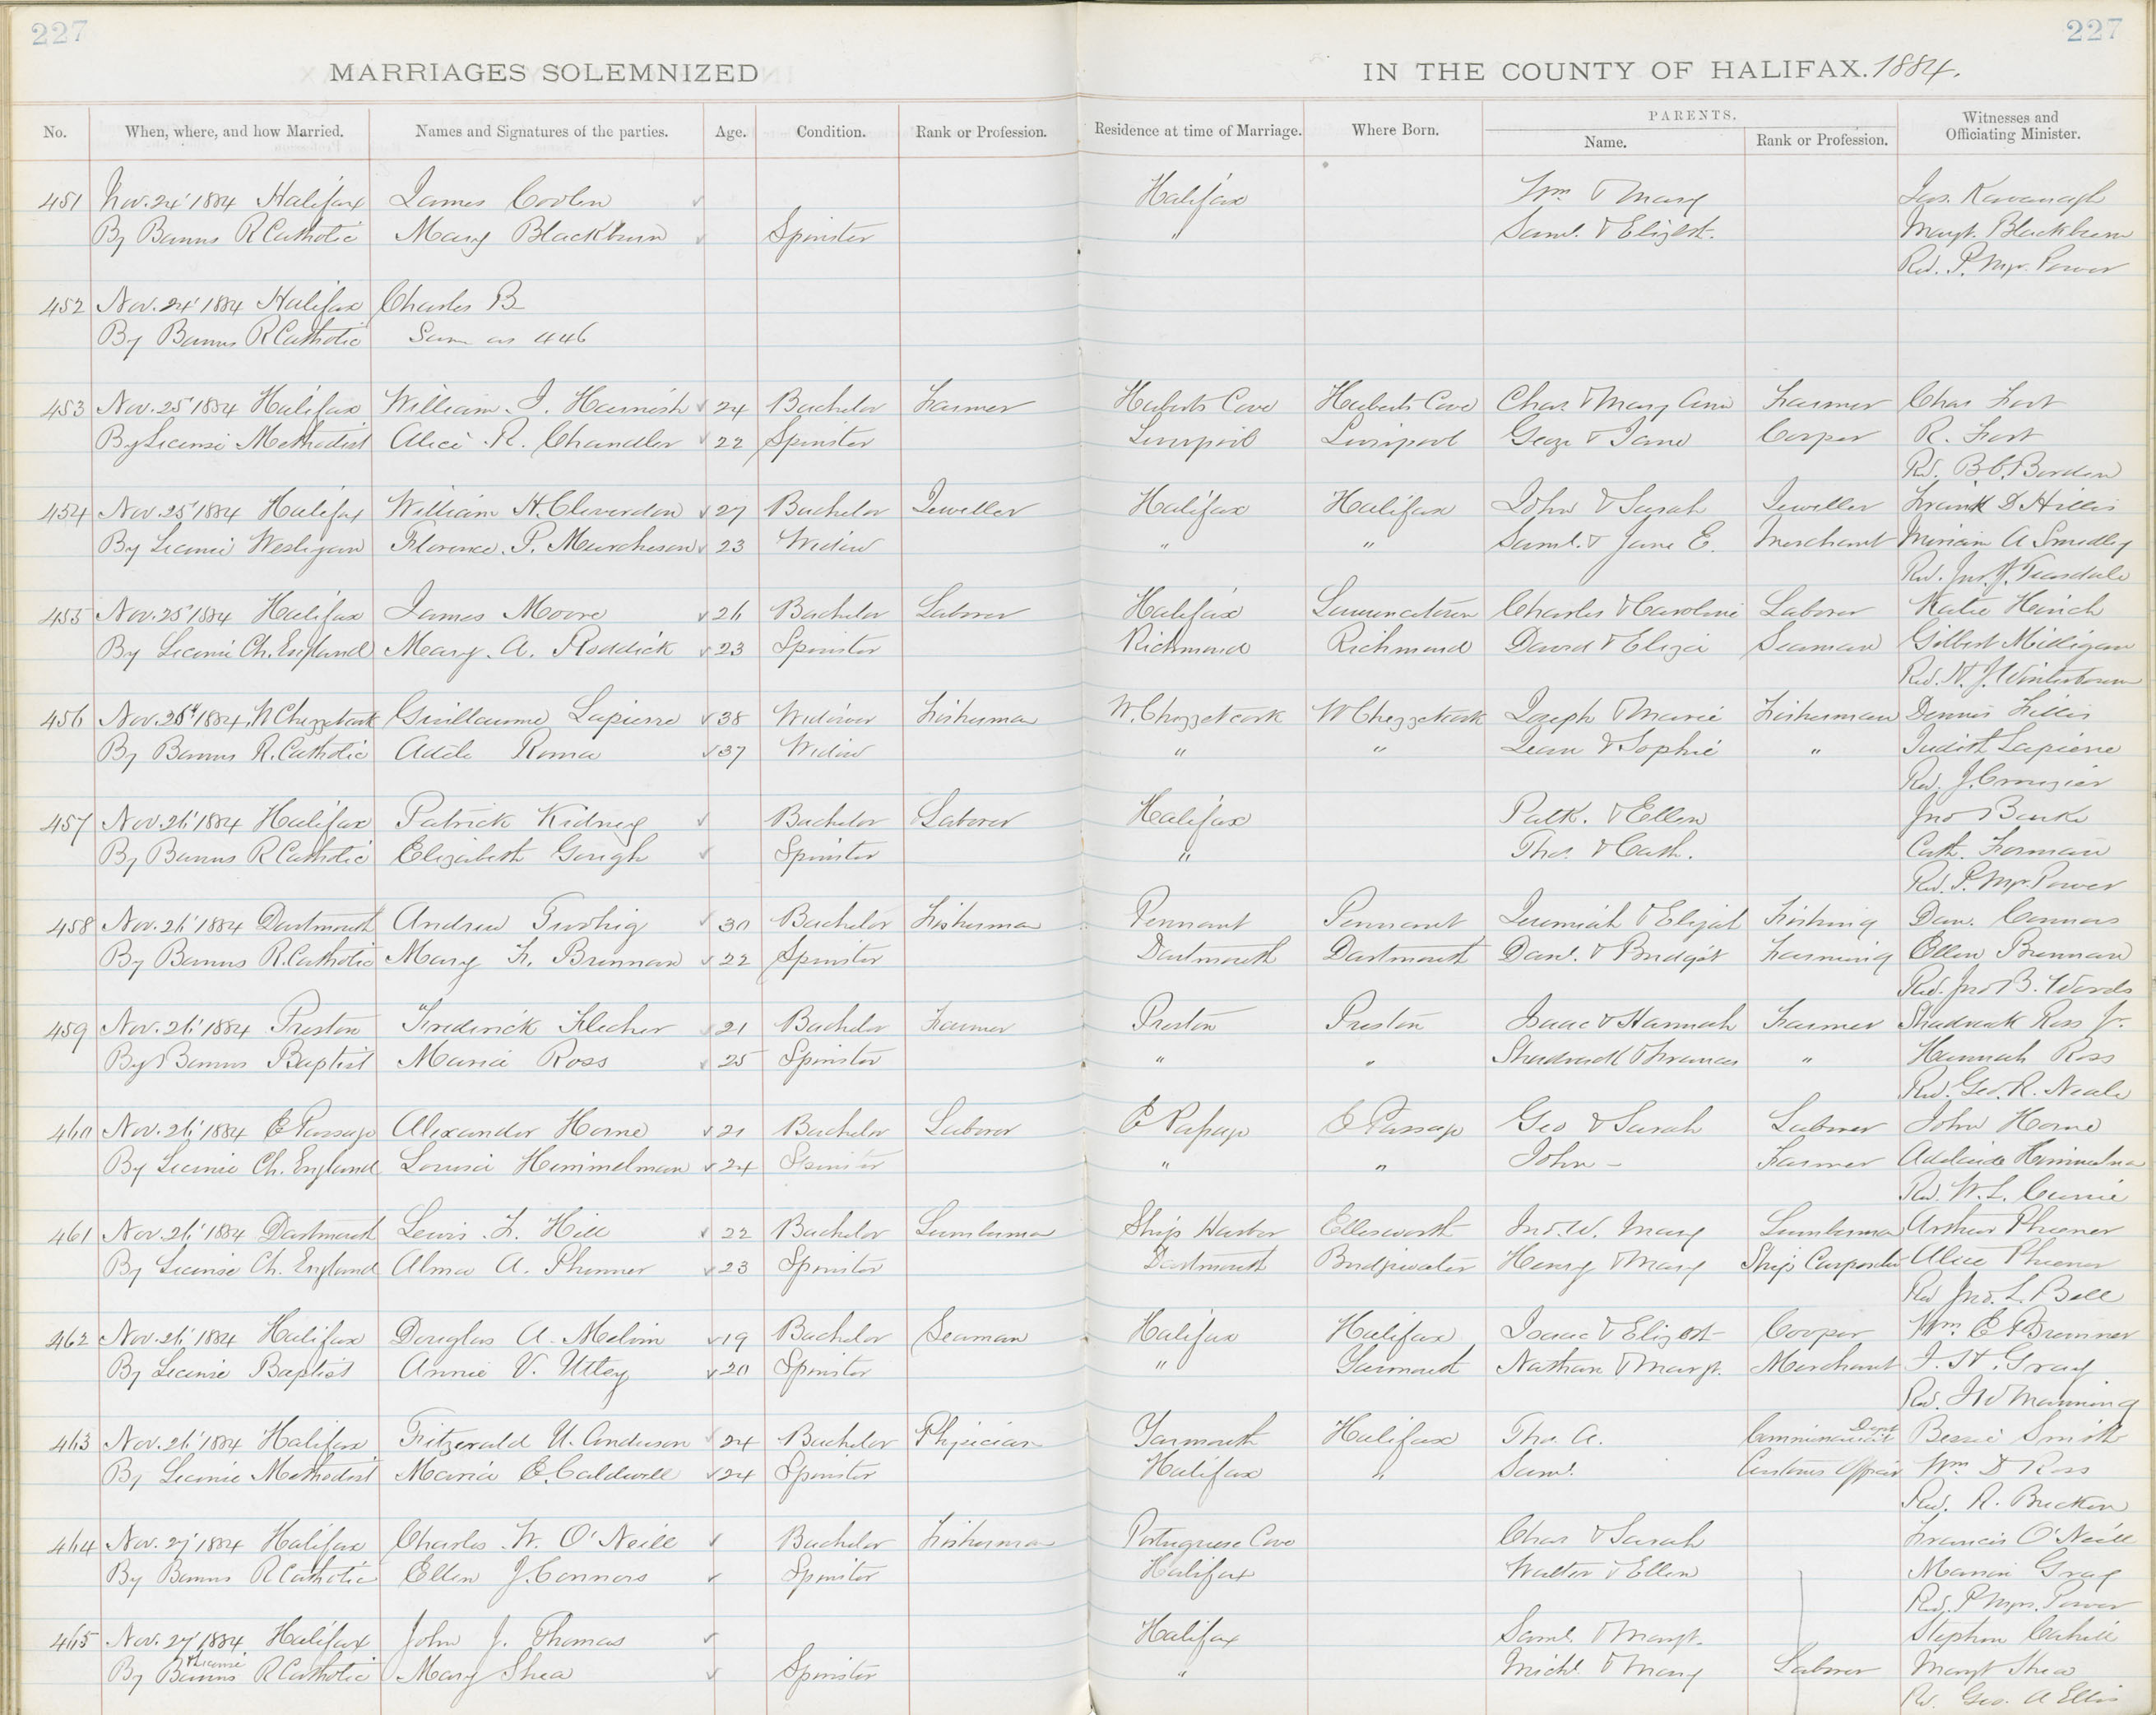 227
227
MARRIAGES SOLEMNIZED
IN THE COUNTY OF HALIFAX. 1884.
No. When, where, and how Married. Names and Signatures of the parties. Age. Condition. Rank or Profession. Residence at time of Marriage. Where Born. PARENTS. Name. Rank or Profession. Witnesses and Officiating Minister.
451 Nov. 24' 1884 Halifax James Coolen Halifax Wm & Mary Jas. Kavanagh
By Banns R Catholic Mary Blackburn Spinster " Saml. & Elizbt. Margt. Blackburn
Rd. P. Mgr. Power
452 Nov. 24' 1884 Halifax Charles B
By Banns R Catholic Same as 446
453 Nov. 25' 1884 Halifax William J. Harnish 24 Bachelor Farmer Huberts Cove Huberts Cove Chas & Mary Ann Farmer Chas Fort
By License Methodist Alice R. Chandler 22 Spinster Liverpool Liverpool George & Jane Cooper R. Fort
Rd. B.C. Borden
454 Nov. 25' 1884 Halifax William H. Cleverdon 27 Bachelor Jeweller Halifax Halifax John & Sarah Jeweller Frank D Hillis
By License Wesleyan Florence P. Murcheson 23 Widow " " Saml. & Jane E. Merchant Miriam A Smedley
Rd. Jno. J. Teasdale
455 Nov. 25' 1884 Halifax James Moore 26 Bachelor Laborer Halifax Lawrencetown Charles & Caroline Laborer Katie Heinch
By License Ch. England Mary A. Roddick 23 Spinster Richmond Richmond David & Eliza Seaman Gilbert Milligan
Rd. N. J. Winterbourn
456 Nov. 25' 1884 W Chezzetcook Guillaume Lapierre 38 Widower Fisherman W. Chezzetcook W Chezzetcook Joseph & Marie Fisherman Dennis
By Banns R. Catholic Adele Roma 37 Widow " " Jean & Sophie " Judith Lapierre
Rd. J. Crouzier
457 Nov. 26' 1884 Halifax Patrick Kidney Bachelor Laborer Halifax Patk. & Ellen Jno Burke
By Banns R Catholic Elizabeth Gough Spinster " Thos. & Cath. Cath. Forman
Rd. P. Mgr. Power
458 Nov. 26' 1884 Dartmouth Andrew Twohig 30 Bachelor Fisherman Pennant Pennant Jeremiah & Elizab Fishing Dan. Connors
By Banns R. Catholic Mary F. Brennan 22 Spinster Dartmouth Dartmouth Danl. & Bridget Farming Ellen Brennan
Rd. Jno B. Woods
459 Nov. 26' 1884 Preston "Frederick Flecher 21 Bachelor Farmer Preston Preston Isaac & Hannah Farmer Shadrack Ross Jr.
By Banns Baptist Maria Ross 25 Spinster " " Shadrack & Frances " Hannah Ross
Rd. Geo. R. Neale
460 Nov. 26' 1884 E Passage Alexander Horne 21 Bachelor Laborer E Passage E Passage Geo & Sarah Laborer John Horne
By License Ch. England Louisa Himmelman 24 Spinster " " John - Farmer Adelaide Himmelma
Rd. W. L. Currie
461 Nov. 26' 1884 Dartmouth Lewis F. Hill 22 Bachelor Lumberman Ship Harbor Ellesworth Jno. W. Mary Lumberman Arthur Phener
By License Ch. England Alma A. Phenner 23 Spinster Dartmouth Bridgewater Henry & Mary Ship Carpenter Alice Phener
Rd Jno. L. Bell
462 Nov. 26' 1884 Halifax Douglas A. Melvin 19 Bachelor Seaman Halifax Halifax Isaac & Elizbt Cooper Wm. E F Bremner
By License Baptist Annie V. Utley 20 Spinster " Yarmouth Nathan & Margt. Merchant J. H. Gray
Rd. J W Manning
463 Nov. 26' 1884 Halifax Fitzgerald U. Anderson 24 Bachelor Physician Yarmouth Halifax Tho. A. Commissariat Dept Bessie Smith
By License Methodist Maria E. Caldwell 24 Spinster Halifax " Saml. Customs Officer Wm. D Ross
Rd. R. Brecken
464 Nov. 27' 1884 Halifax Charles W. O'Neill Bachelor Fisherman Portuguese Cove Chas & Sarah Francis O'Neill
By Banns R Catholic Ellen J. Connors Spinster Halifax Walter & Ellen Gray
Rd. P Mgr. Power
465 Nov. 27' 1884 Halifax John J. Thomas Halifax Saml. & Margt. Stephen Cahill
By Banns & License R Catholic Mary Shea Spinster " Michl. & Mary Laborer Margt Shea
Rd. Geo. A Ellis